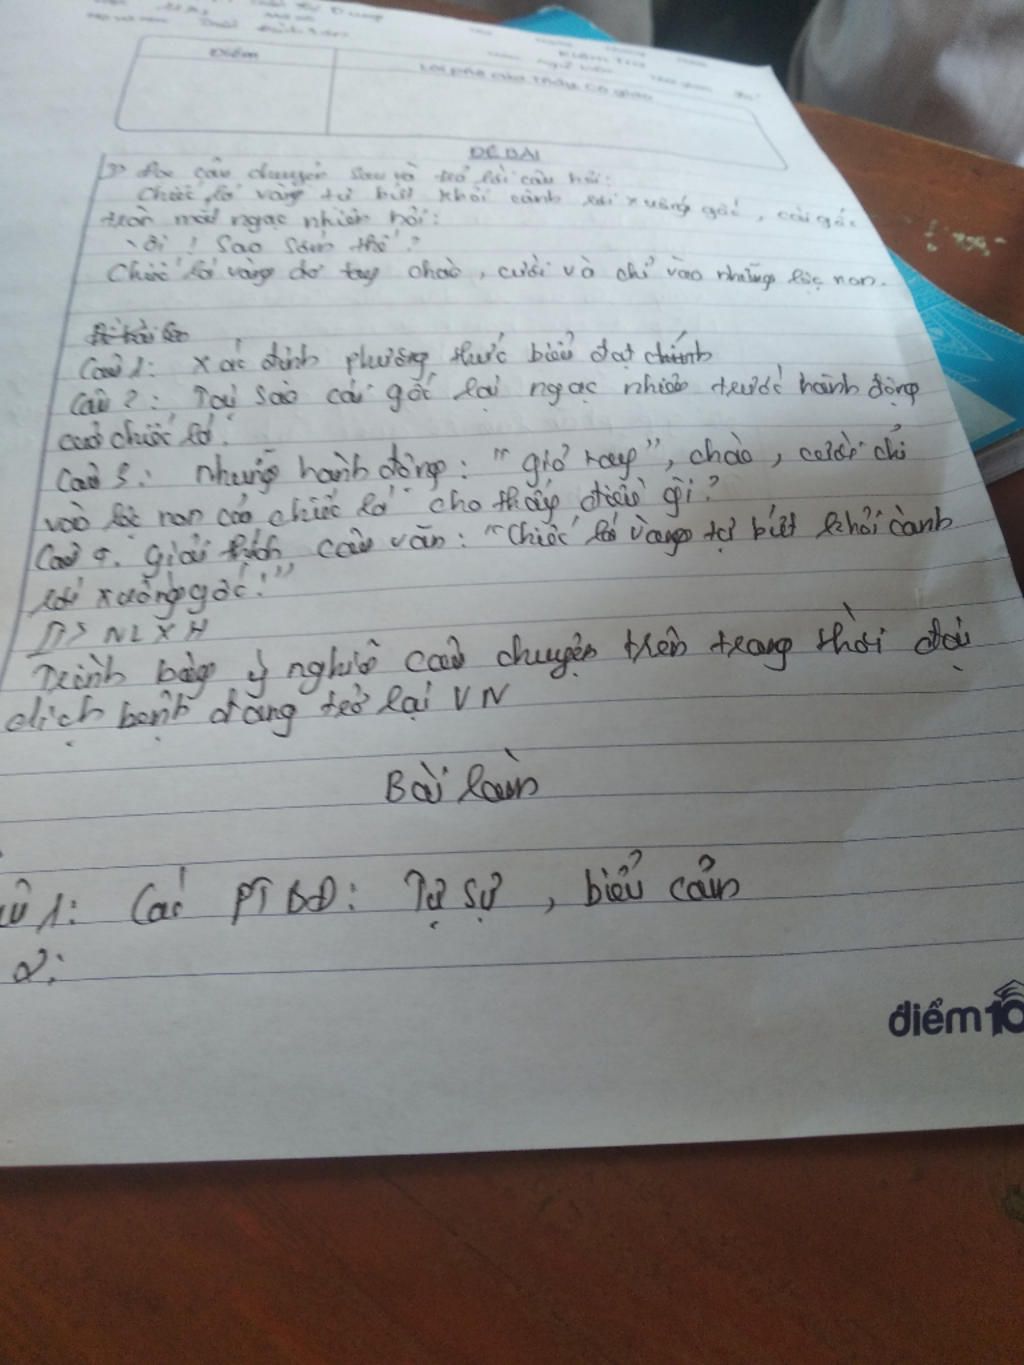 Điểm
Lời phê của Thầy, Cô giáo
ĐỀ BÀI
I> Đọc câu chuyện sau và trả lời câu hỏi:
Chiếc lá vàng tự bứt khỏi cành rơi xuống gốc, cái gốc
tròn mắt ngạc nhiên hỏi:
- Ơi ! Sao sớm thế ?
Chiếc lá vàng giơ tay chào, cười và chỉ vào những lộc non.
Câu 1: Xác định phương thức biểu đạt chính
Câu 2: Tại sao cái gốc lại ngạc nhiên trước hành động
của chiếc lá.
Câu 3: Những hành động: "giơ tay", chào, cười chỉ
vào lộc non của chiếc lá cho thấy điều gì?
Câu 4. Giải thích câu văn: "Chiếc lá vàng tự bứt khỏi cành
rơi xuống gốc."
II> NLXH
Trình bày ý nghĩa câu chuyện trên trong thời đại
dịch bệnh đang trở lại VN
Bài làm
1: Các PTBĐ: Tự sự, biểu cảm
2:
điểm10